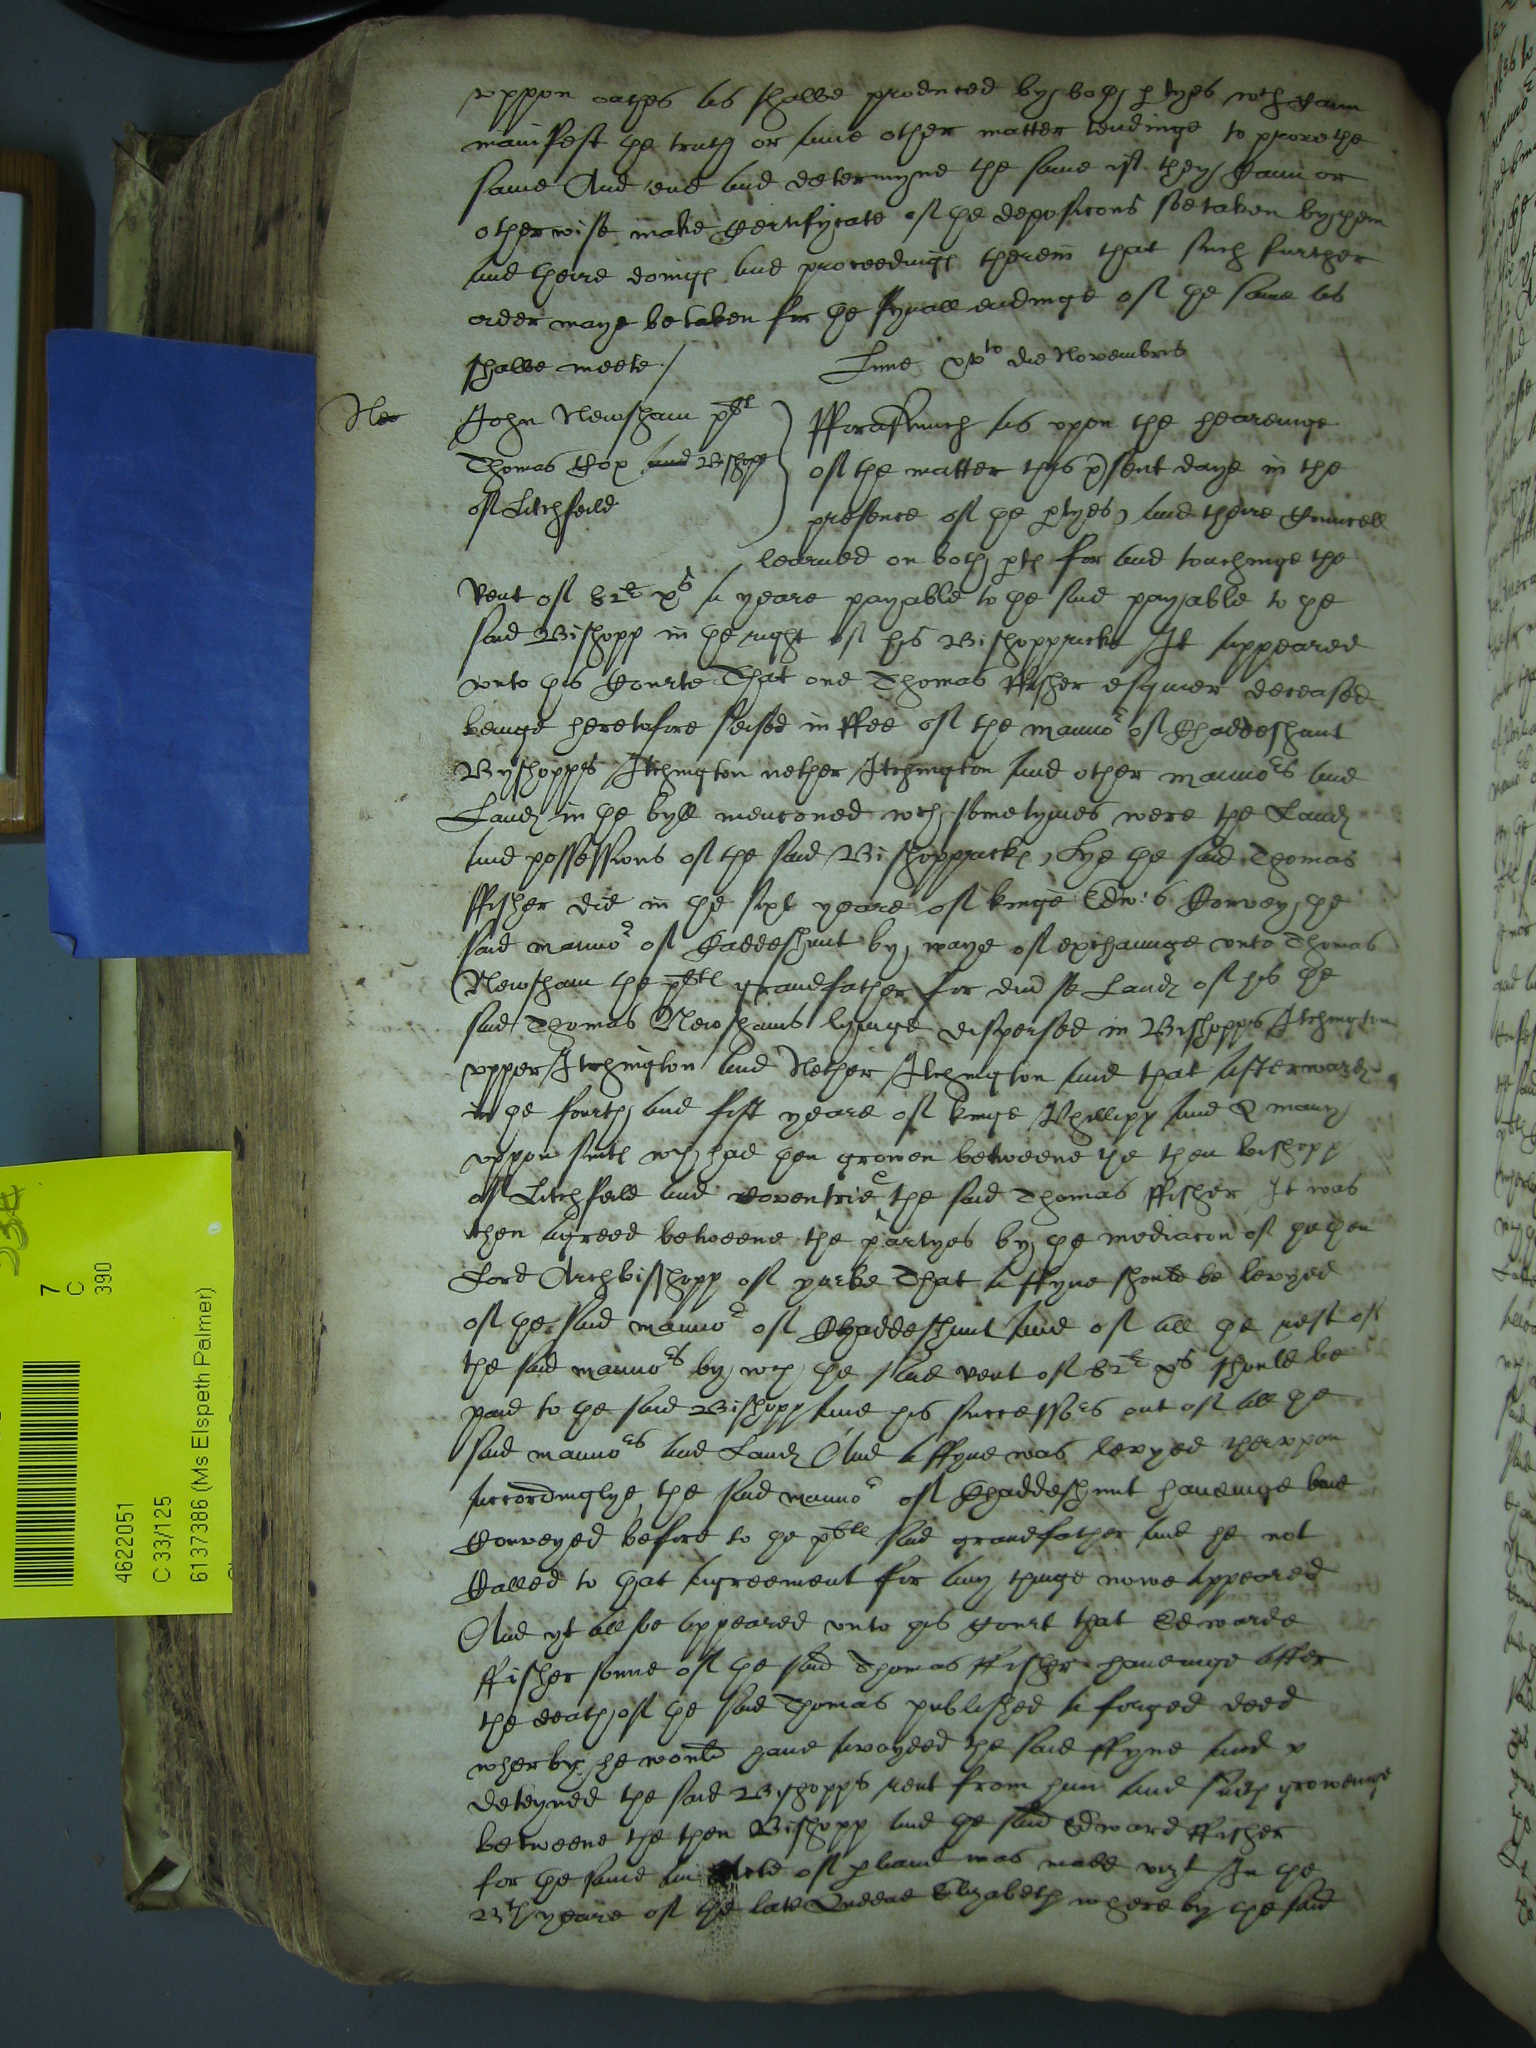 vppon oathes as shalbe produced by both ptyes wch cann
manifest the truth or anie other matter tendinge to prove the
same And end and determyne the same if they cann or
otherwise make Certifycate of the deposicons soe taken by them
and theire doings and proceedings therein that such further
order maye be taken for the fynall endinge of the same as
shalbe meete /
Lune xvto die Novembris
New
John Newsham plt
Thomas Bishopp
of Litchfeild
fforasmuch as vpon the hearinge
of the matter this psent daye in the
presence of the ptyes, and theire Councell
learned on both pts for and touchinge the
Rent of 82l xs a yeare payable to the said payable to the
said Bishopp in the right of his Bishoppricke It appeared
vnto this Courte That one Thomas ffisher esquier deceased
beinge heretofore seised in ffee of the mannor of Chaddeshunt
Byshopps Itchington nether Itchington and other mannors and
Lands in the byll mencioned wch sometymes were the Lands
and possessions of the said Bishoppricke, hye the said Thomas
ffisher did in the sixt yeare of kinge Edw: 6 Convey the
said mannor of Caddeshunt by waye of exchaunge vnto Thomas
Newsham the plts grandfather for Lands of his the
said Thomas Newshams lyinge dispersed in Bishopps Itchington
vpper Itchington and Nether Itchington and that afterwards
in the fourth and fift yeare of kinge Phillipp and Q mary
vppon suits wch had then growen betweene the then bishopp
of Litchfeild and Coventrie & the said Thomas ffisher It was
then agreed betweene the partyes by the mediacon of the then
Lord Archbisshopp of yorke That a ffyne should be levyed
of the said mannor of Chaddeshunt and of all the rest of
the said mannors by wch the said rent of 82l xs should be
paid to the said Bishopp and his successors out of all the
said mannors and Lands And a ffyne was levyed thervpon
accordinglye, the said mannor of Chaddeshunt haveinge bine
Conveyed before to the plts said grandfather and he not
Called to that agreement for any thinge nowe appeared
And yt allsoe appeared vnto this Court that Edwarde
ffisher sonne of the said Thomas ffisher haveinge after
the death of the said Thomas published a forged deed
wherby he would have avoyded the said ffyne and
deteyned the said Bishopps rent from him and suits groweinge
betweene the then Bishopp and the said Edward ffisher
for the same an Acte of pliamt was made vizt In the
yeare of the late Queene Elizabeth where by the said
7
C
390
4622051
C 33/125
6137386 (Ms Elspeth Palmer)